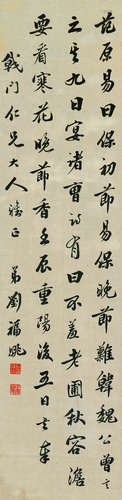 原易曰保初節保晚節難韓魏公曾言
之其九日宴諸曹詩有曰不羞老圃秋容澹
要看寒花晚節香壬辰重陽後五日書奉
戟門仁兄大人正
弟劉福姚